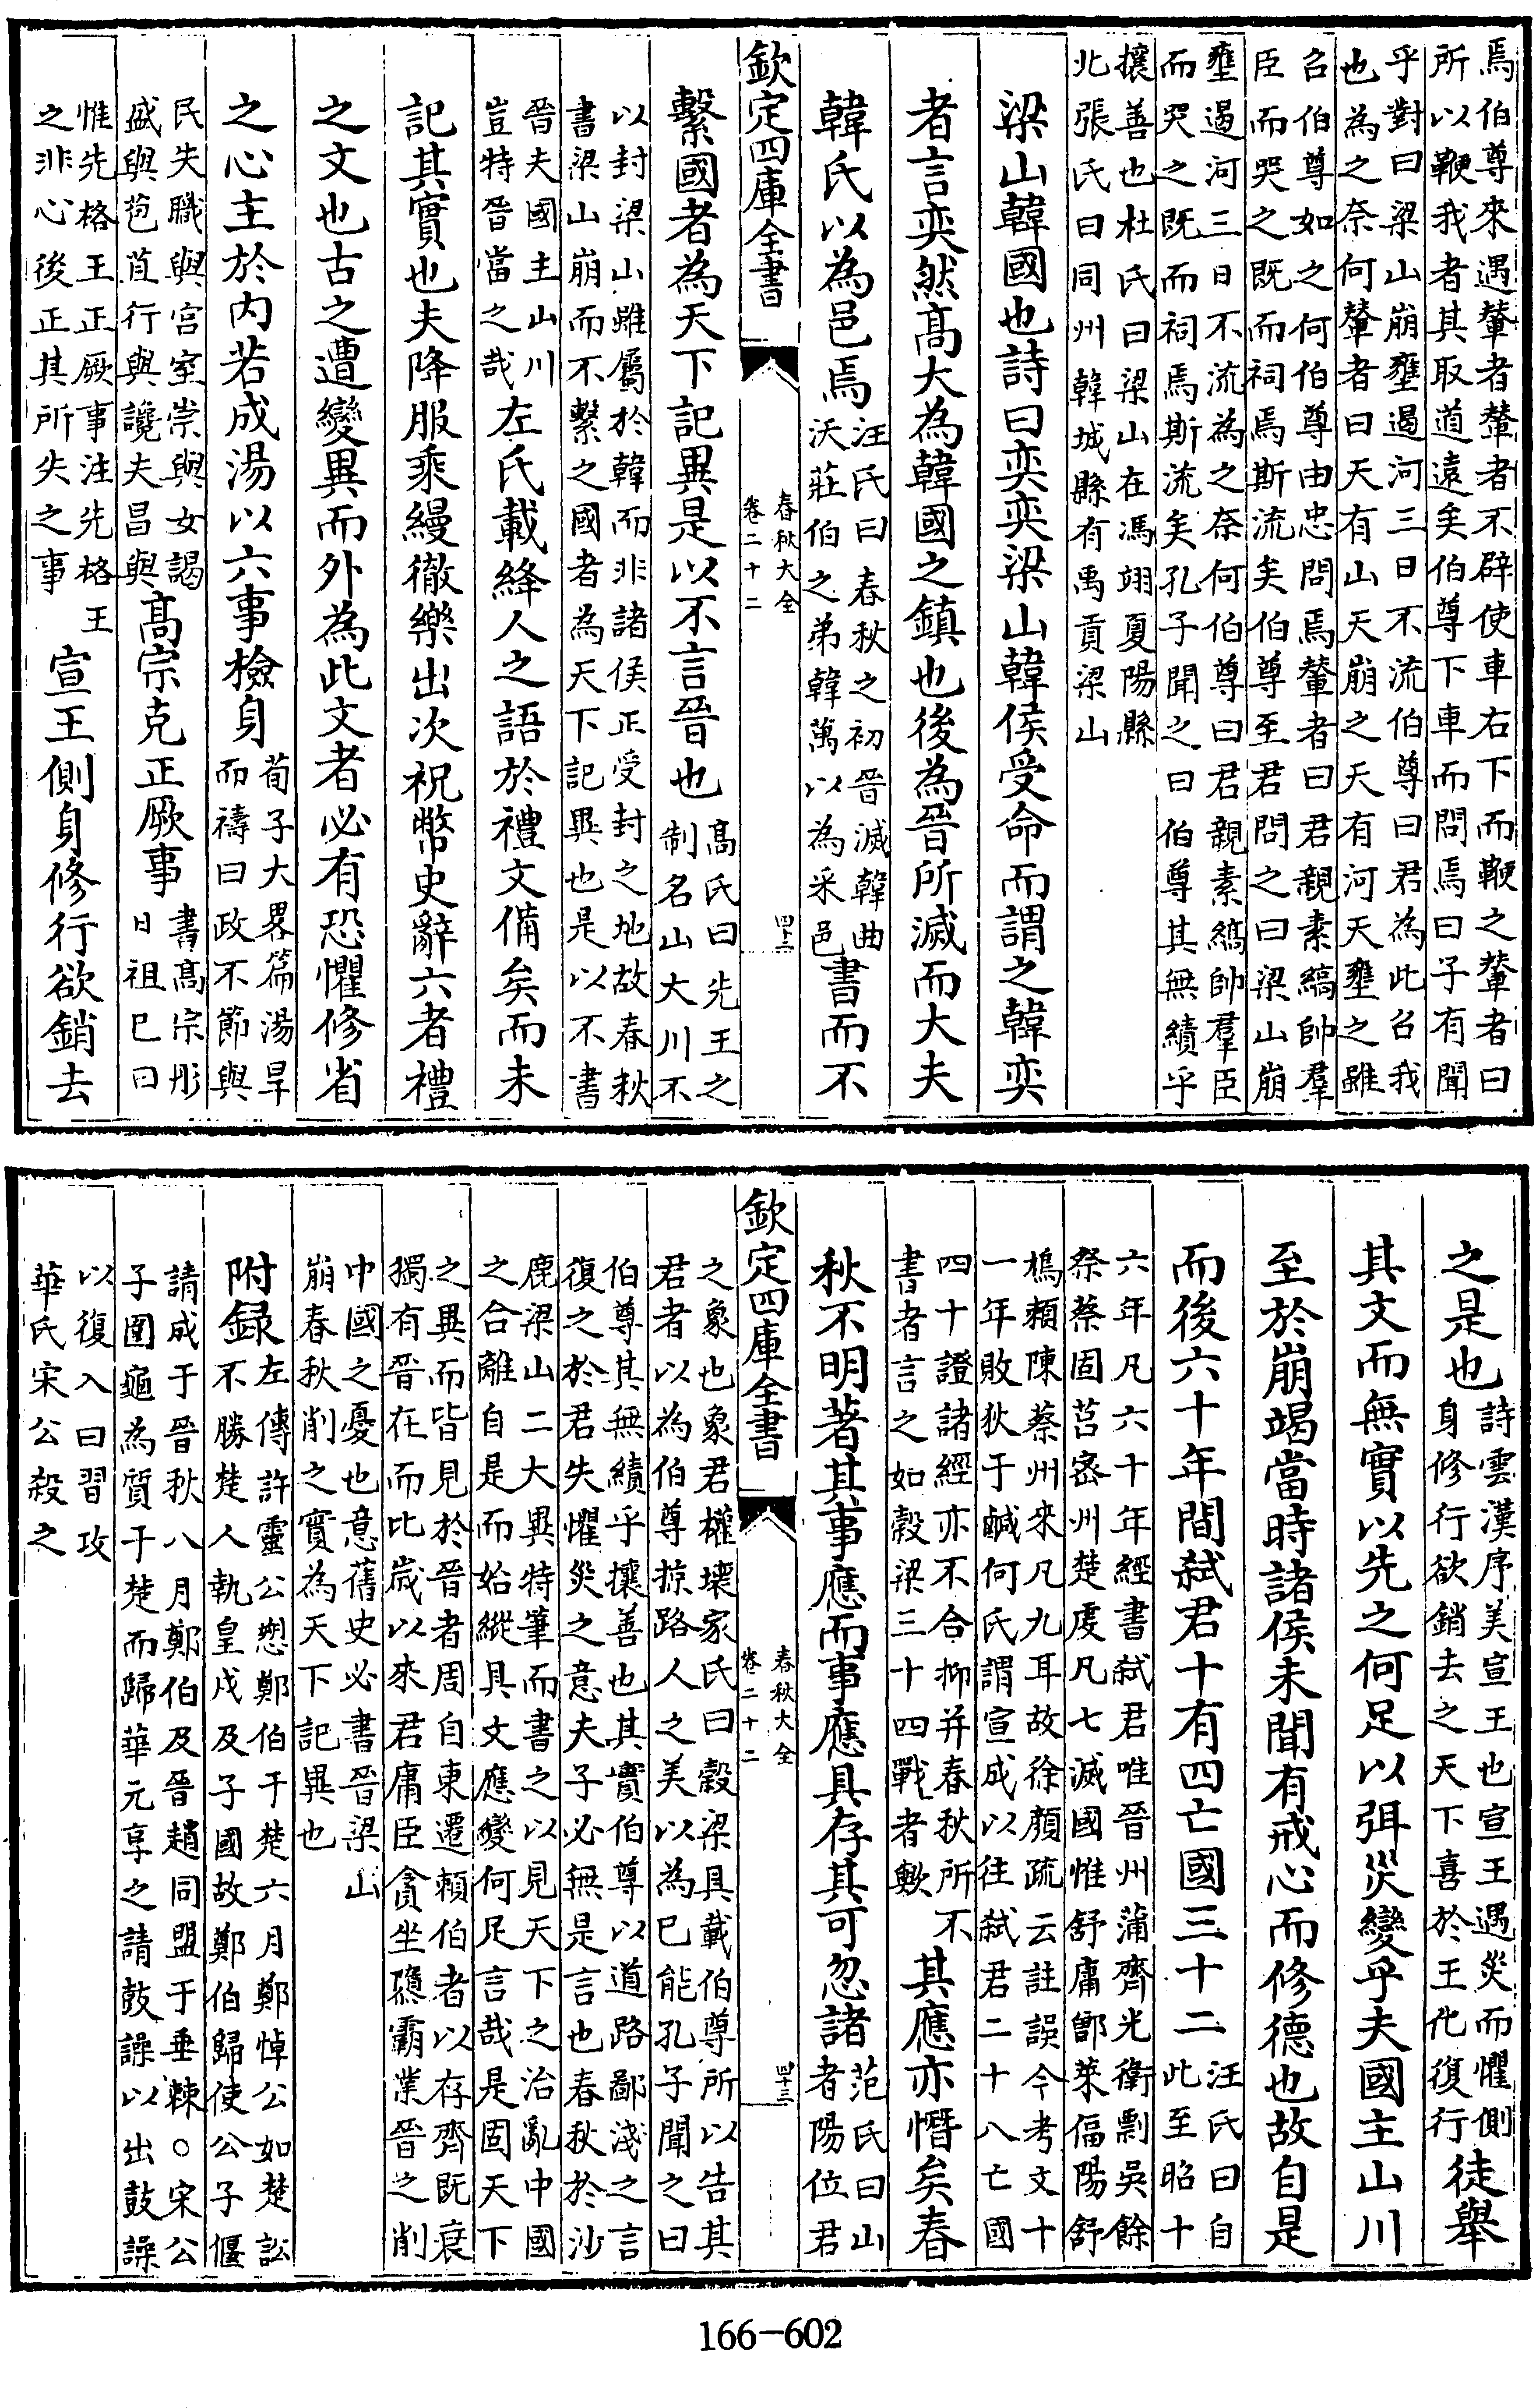 焉伯尊來遇輦者輦者不辟使車右下而鞭之輦者曰
所以鞭我者其取道遠矣伯尊下車而問焉曰子有聞
乎對曰梁山崩壅遏河三日不流伯尊曰君為此召我
也為之奈何輦者曰天有山天崩之天有河天壅之雖
召伯尊如之何伯尊由忠問焉輦者曰君親素縞帥羣
臣而哭之既而祠焉斯流矣伯尊至君問之曰梁山崩
壅遏河三日不流為之奈何伯尊曰君親素縞帥羣臣
而哭之既而祠焉斯流矣孔子聞之曰伯尊其無績乎
攘善也杜氏曰梁山在馮翊夏陽縣
北張氏曰同州韓城縣有禹貢梁山
梁山韓國也詩曰奕奕梁山韓侯受命而謂之韓奕
者言奕然高大為韓國之鎮也後為晉所滅而大夫
韓氏以為邑焉汪氏曰春秋之初晉滅韓曲沃莊伯之弟韓萬以為采邑書而不
欽定四庫全書 春秋大全 卷二十二 四十二
繫國者為天下記異是以不言晉也高氏曰先王之制名山大川不
以封梁山雖屬於韓而非諸侯正受封之地故春秋
書梁山崩而不繫之國者為天下記異也是以不書
晉夫國主山川豈特晉當之哉左氏載絳人之語於禮文備矣而未
記其實也夫降服乘縵徹樂出次祝幣史辭六者禮
之文也古之遭變異而外為此文者必有恐懼修省
之心主於內若成湯以六事檢身荀子大畧篇湯旱而禱曰政不節與
民失職與宮室崇與女謁盛與苞苴行與讒夫昌與高宗克正厥事書高宗肜日祖巳曰
惟先格王正厥事注先格王之非心後正其所失之事宣王側身修行欲銷去
之是也詩雲漢序美宣王也宣王遇災而懼側身修行欲銷去之天下喜於王化復行徒舉
其文而無實以先之何足以弭災變乎夫國主山川
至於崩竭當時諸侯未聞有戒心而修德也故自是
而後六十年間弑君十有四亡國三十二汪氏曰自此至昭十
六年凡六十年經書弑君唯晉州蒲齊光衛剽吳餘
祭蔡固莒密州楚虔凡七滅國惟舒庸鄫萊偪陽舒
鳩賴陳蔡州來凡九耳故徐顏疏云註誤今考文十
一年敗狄于鹹何氏謂宣成以往弑君二十八亡國
四十證諸經亦不合抑并春秋所不書者言之如穀梁三十四戰者歟其應亦憯矣春
秋不明著其事應而事應具存其可忽諸范氏曰山者陽位君
欽定四庫全書 春秋大全 卷二十二 四十三
之象也象君權壞家氏曰穀梁具載伯尊所以告其
君者以為伯尊掠路人之美以為已能孔子聞之曰
伯尊其無績乎攘善也其實伯尊以道路鄙淺之言
復之於君失懼災之意夫子必無是言也春秋於沙
鹿梁山二大異特筆而書之以見天下之治亂中國
之合離自是而始縱具文應變何足言哉是固天下
之異而皆見於晉者周自東遷賴伯者以存齊既衰
獨有晉在而比歲以來君庸臣貪坐隳霸業晉之削
中國之憂也意舊史必書晉梁山
崩春秋削之實為天下記異也
附録左傳許靈公愬鄭伯于楚六月鄭悼公如楚訟不勝楚人執皇戌及子國故鄭伯歸使公子偃
請成于晉秋八月鄭伯及晉趙同盟于垂棘○宋公
子圍龜為質于楚而歸華元享之請鼓譟以出鼓譟
以復入曰習攻
華氏宋公殺之
166-602